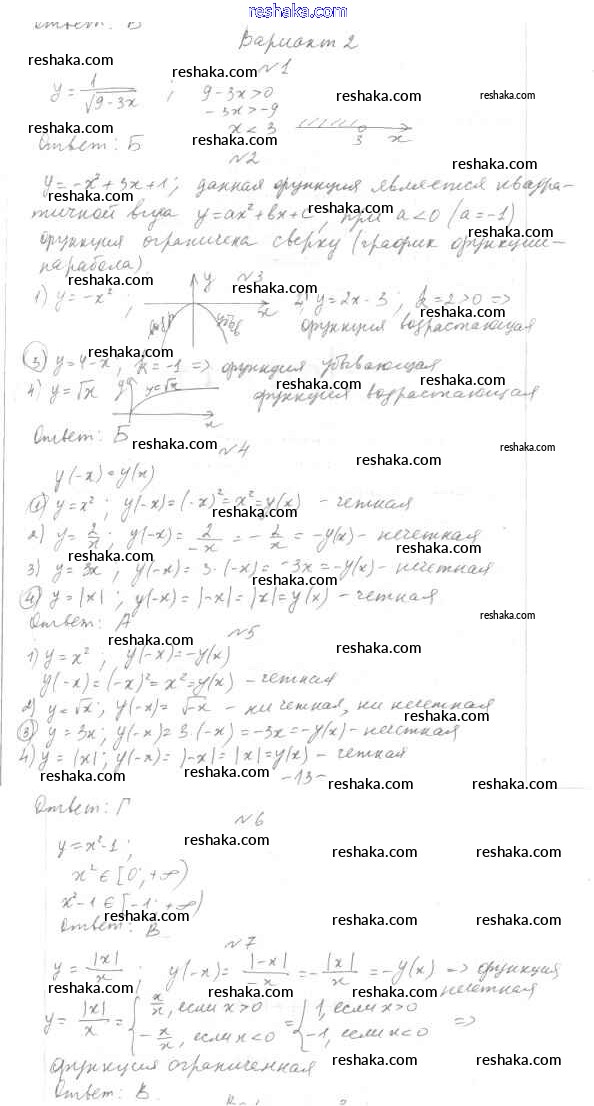 reshaka.com
Ответ: В
Вариант 2
№1
y = 1/√(9-3x) ; 9-3x>0
-3x>-9
x<3
3 x
Ответ: Б
№2
y = -x²+3x+1; данная функция является квадра-
тичной вида y=ax²+bx+c, при a<0 (a=-1)
функция ограничена сверху (график функции -
парабола)
№3
1) y = -x² ; y x 2) y=2x-3 ; k=2>0 =>
функция возрастающая
3) y=4-x, k=-1 => функция убывающая
4) y=√x y y=√x x функция возрастающая
Ответ: Б
№4
y(-x)=y(x)
1) y=x² ; y(-x)=(-x)²=x²=y(x) - четная
2) y=2/x ; y(-x)= 2/-x = -2/x = -y(x) - нечетная
3) y=3x ; y(-x)=3·(-x)=-3x=-y(x) - нечетная
4) y=|x| ; y(-x)=|-x|=|x|=y(x) - четная
Ответ: А
№5
1) y=x² ; y(-x)=-y(x)
y(-x)=(-x)²=x²=y(x) - четная
2) y=√x; y(-x)=√-x - ни четная, ни нечетная
3) y=3x; y(-x)=3·(-x)=-3x=-y(x) - нечетная
4) y=|x|; y(-x)=|-x|=|x|=y(x) - четная
-13-
Ответ: Г
№6
y=x²-1 ;
x² ∈ [0 ; +∞)
x²-1 ∈ [-1 ; +∞)
Ответ: В
№7
y = |x|/x ; y(-x)= |-x|/-x = -|x|/x = -y(x) => функция
нечетная
y = |x|/x = { x/x, если x>0 = { 1, если x>0
-x/x, если x<0 -1, если x<0 =>
функция ограниченная
Ответ: В